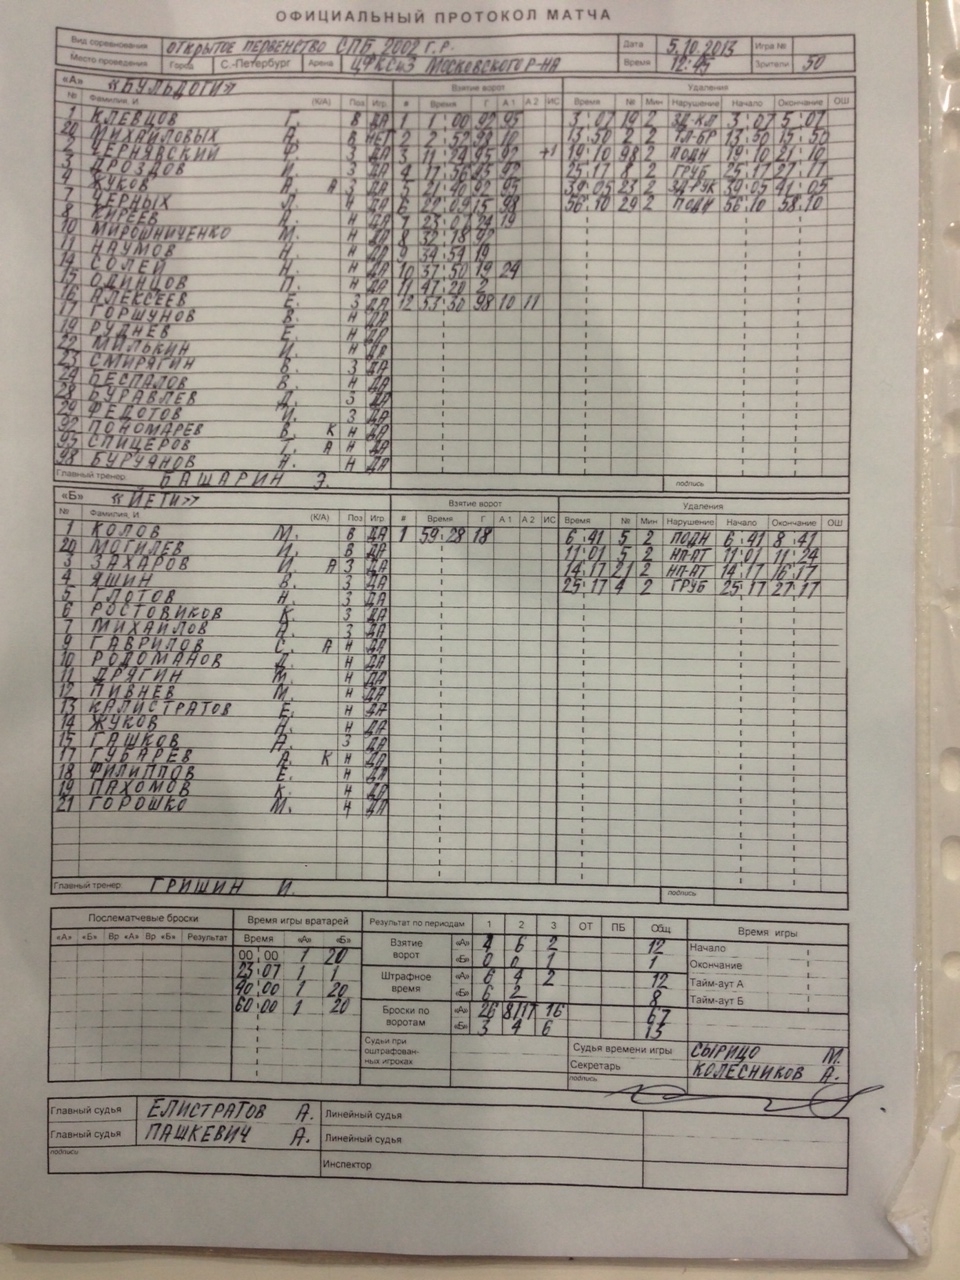 ОФИЦИАЛЬНЫЙ ПРОТОКОЛ МАТЧА
Вид соревнования ОТКРЫТОЕ ПЕРВЕНСТВО СПБ 2002 Г.Р. Дата 5.10.2013 Игра №
Место проведения Город С.-Петербург Арена ЦФКСиЗ Московского Р-НА Время 12:45 Зрители 50
«А» «БУЛЬДОГИ» Взятие ворот Удаления
№ Фамилия, И. (К/А) Поз Игр. # Время Г А1 А2 ИС Время № Мин Нарушение Начало Окончание ОШ
1 КЛЕВЦОВ Г. В ДА 1 1:00 92 95 3:07 19 2 ЗД-КЛ 3:07 5:07
20 МИХАЙЛОВЫХ А. В НЕТ 2 2:52 98 10 13:50 2 2 ТЛ-БР 13:50 15:50
2 ЧЕРНЯВСКИЙ Ф. З ДА 3 11:29 95 92 +1 19:10 98 2 ПОДН 19:10 21:10
3 ДРОЗДОВ И. З ДА 4 17:56 95 92 25:17 8 2 ГРУБ 25:17 27:17
4 ЖУКОВ А. А З ДА 5 21:40 92 95 39:05 23 2 ЗД-РУК 39:05 41:05
7 ЧЕРНЫХ Л. Н ДА 6 22:09 15 98 56:10 29 2 ПОДН 56:10 58:10
8 КИРЕЕВ А. Н ДА 7 23:07 24 19
10 МИРОШНИЧЕНКО М. Н ДА 8 32:18 92
11 НАУМОВ Н. Н ДА 9 34:54 19
14 СОЛЕЙ Н. Н ДА 10 37:50 19 24
15 ОДИНЦОВ П. Н ДА 11 47:20 2
16 АЛЕКСЕЕВ Е. З ДА 12 53:30 98 10 11
17 ГОРШУНОВ В. Н ДА
19 РУДНЕВ Е. Н ДА
22 МИЛЬКИН И. Н ДА
23 СМИРЯГИН В. З ДА
24 БЕСПАЛОВ В. Н ДА
28 БУРАВЛЕВ Д. З ДА
29 ФЕДОТОВ И. З ДА
92 ПОНОМАРЕВ В. К Н ДА
95 СПИЦЕРОВ Т. А Н ДА
98 БУРЧАНОВ А. Н ДА
Главный тренер БАШАРИН Э. подпись
«Б» «ЙЕТИ» Взятие ворот Удаления
№ Фамилия, И. (К/А) Поз Игр. # Время Г А1 А2 ИС Время № Мин Нарушение Начало Окончание ОШ
1 КОЛОВ М. В ДА 1 59:28 18 6:41 5 2 ПОДН 6:41 8:41
20 МОГИЛЕВ И. В ДА 11:01 5 2 НП-АТ 11:01 11:24
3 ЗАХАРОВ И. А З ДА 14:17 21 2 НП-АТ 14:17 16:17
4 ЯШИН В. З ДА 25:17 4 2 ГРУБ 25:17 27:17
5 ГЛОТОВ Н. З ДА
6 РОСТОВИКОВ К. З ДА
7 МИХАЙЛОВ А. З ДА
9 ГАВРИЛОВ С. А Н ДА
10 РОДОМАНОВ Д. Н ДА
11 ДРЯГИН М. Н ДА
12 ПИВНЕВ М. Н ДА
13 КАЛИСТРАТОВ Е. Н ДА
14 ЖУКОВ Н. Н ДА
15 ГАШКОВ А. З ДА
17 ГУБАРЕВ А. К Н ДА
18 ФИЛИППОВ Е. Н ДА
19 ПАХОМОВ К. Н ДА
21 ГОРОШКО М. Н ДА
Главный тренер ГРИШИН И. подпись
Послематчевые броски Время игры вратарей Результат по периодам 1 2 3 ОТ ПБ Общ Время игры
«А» «Б» Вр «А» Вр «Б» Результат Время «А» «Б» Взятие ворот «А» 4 6 2 12 Начало
00:00 1 20 «Б» 0 0 1 1 Окончание
23:07 1 1 Штрафное время «А» 6 4 2 12 Тайм-аут А
40:00 1 20 «Б» 6 2 8 Тайм-аут Б
60:00 1 20 Броски по воротам «А» 26 16 67
«Б» 3 4 6 13
Судьи при оштрафованных игроках Судья времени игры СЫРИЦО М.
Секретарь КОЛЕСНИКОВ А.
подпись
Главный судья ЕЛИСТРАТОВ А. Линейный судья
Главный судья ПАШКЕВИЧ А. Линейный судья
подпись Инспектор